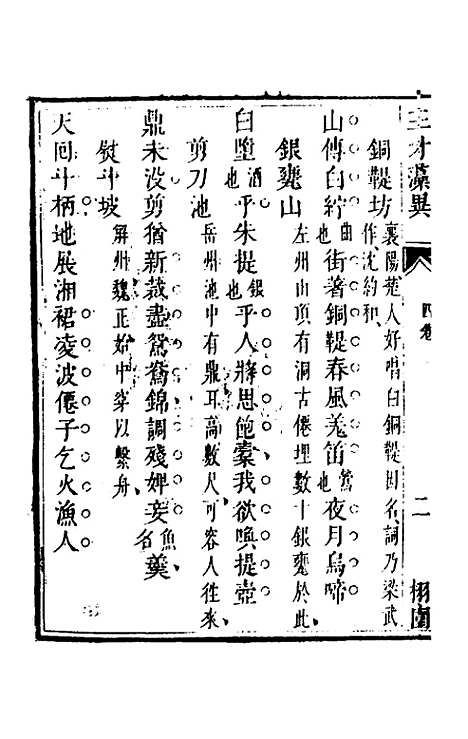 三才藻異
四卷
二
栩園
銅鞮坊 襄陽蕘人好唱白銅鞮因名詞乃梁武
作沈約和
山傳白紵曲也街著銅鞮春風羗笛鶯也夜月烏啼
銀甕山
左州山頂有洞古僊埋數十銀甕於此
白墮酒也乎朱提銀也乎人將思飽橐我欲喚提壺
剪刀池
岳州池中有鼎耳高數尺可容人往來
鼎未没剪猶新裁盡鴛鴦錦調殘婢妾魚名羹
熨斗坡
解州魏正始中穿以繫舟
天囘斗柄地展湘裙凌波僊子乞火漁人